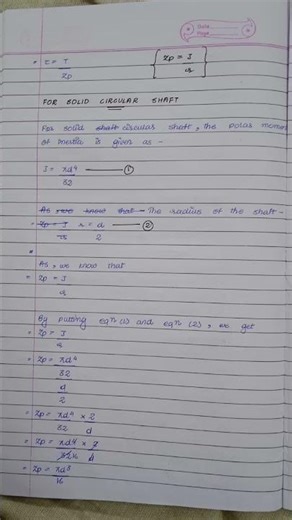 Date
Page
• τ = T
Zp
Zp = J
r
FOR SOLID CIRCULAR SHAFT
For solid shaft circular shaft, the polar moment
of inertia is given as -
J = πd⁴ ——— ①
32
As, we know that - The radius of the shaft -
• Zp = J r = d ——— ②
r 2
As, we know that
• Zp = J
r
By putting eqⁿ (1) and eqⁿ (2), we get
• Zp = J
r
• Zp = πd⁴
32
d
2
• Zp = πd⁴ × 2
32 d
• Zp = πd⁴ × 2
32 16 d
• Zp = πd³
16